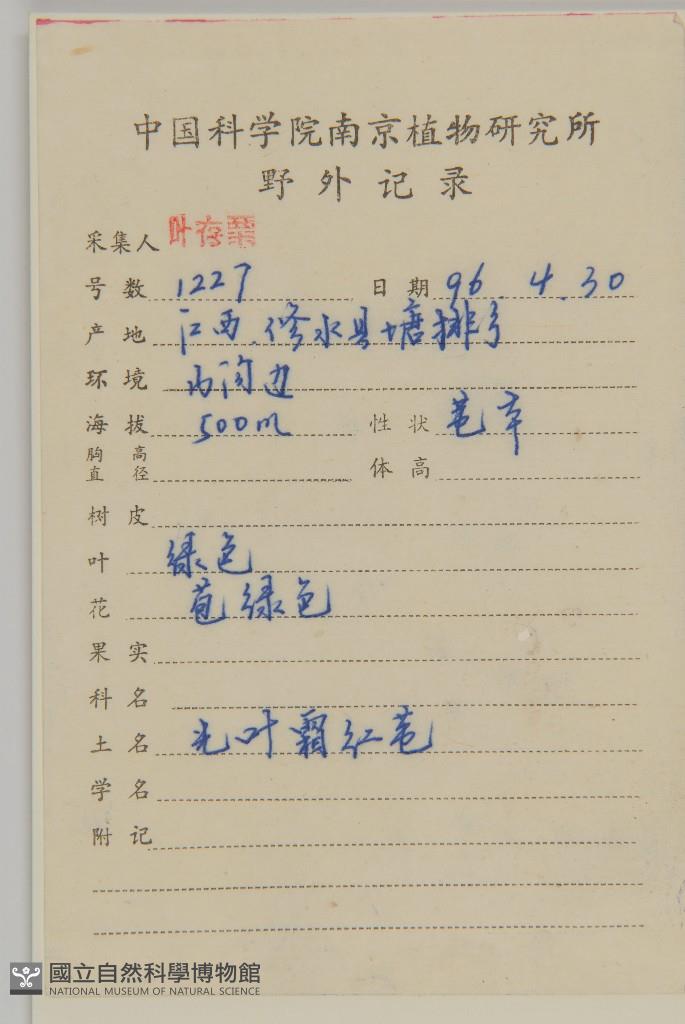 中国科学院南京植物研究所
野外记录
采集人 叶存粟
号数 1227 日期 96.4.30
产地 江西.修水县塘排
环境 山沟边
海拔 500m 性状 草
胸高直径 体高
树皮
叶 绿色
花 苞绿色
果实
科名
土名 光叶 红
学名
附记
國立自然科學博物館
NATIONAL MUSEUM OF NATURAL SCIENCE